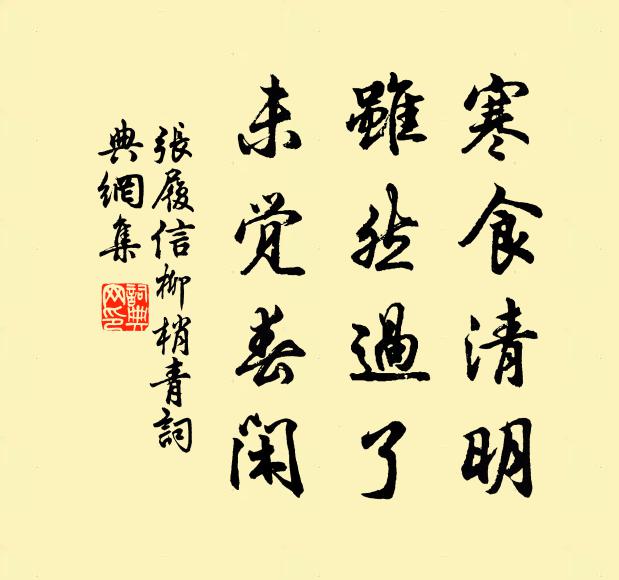 寒食清明
雖然過了
未覺春閑
張履信柳梢青詞
典網集
詞典網印